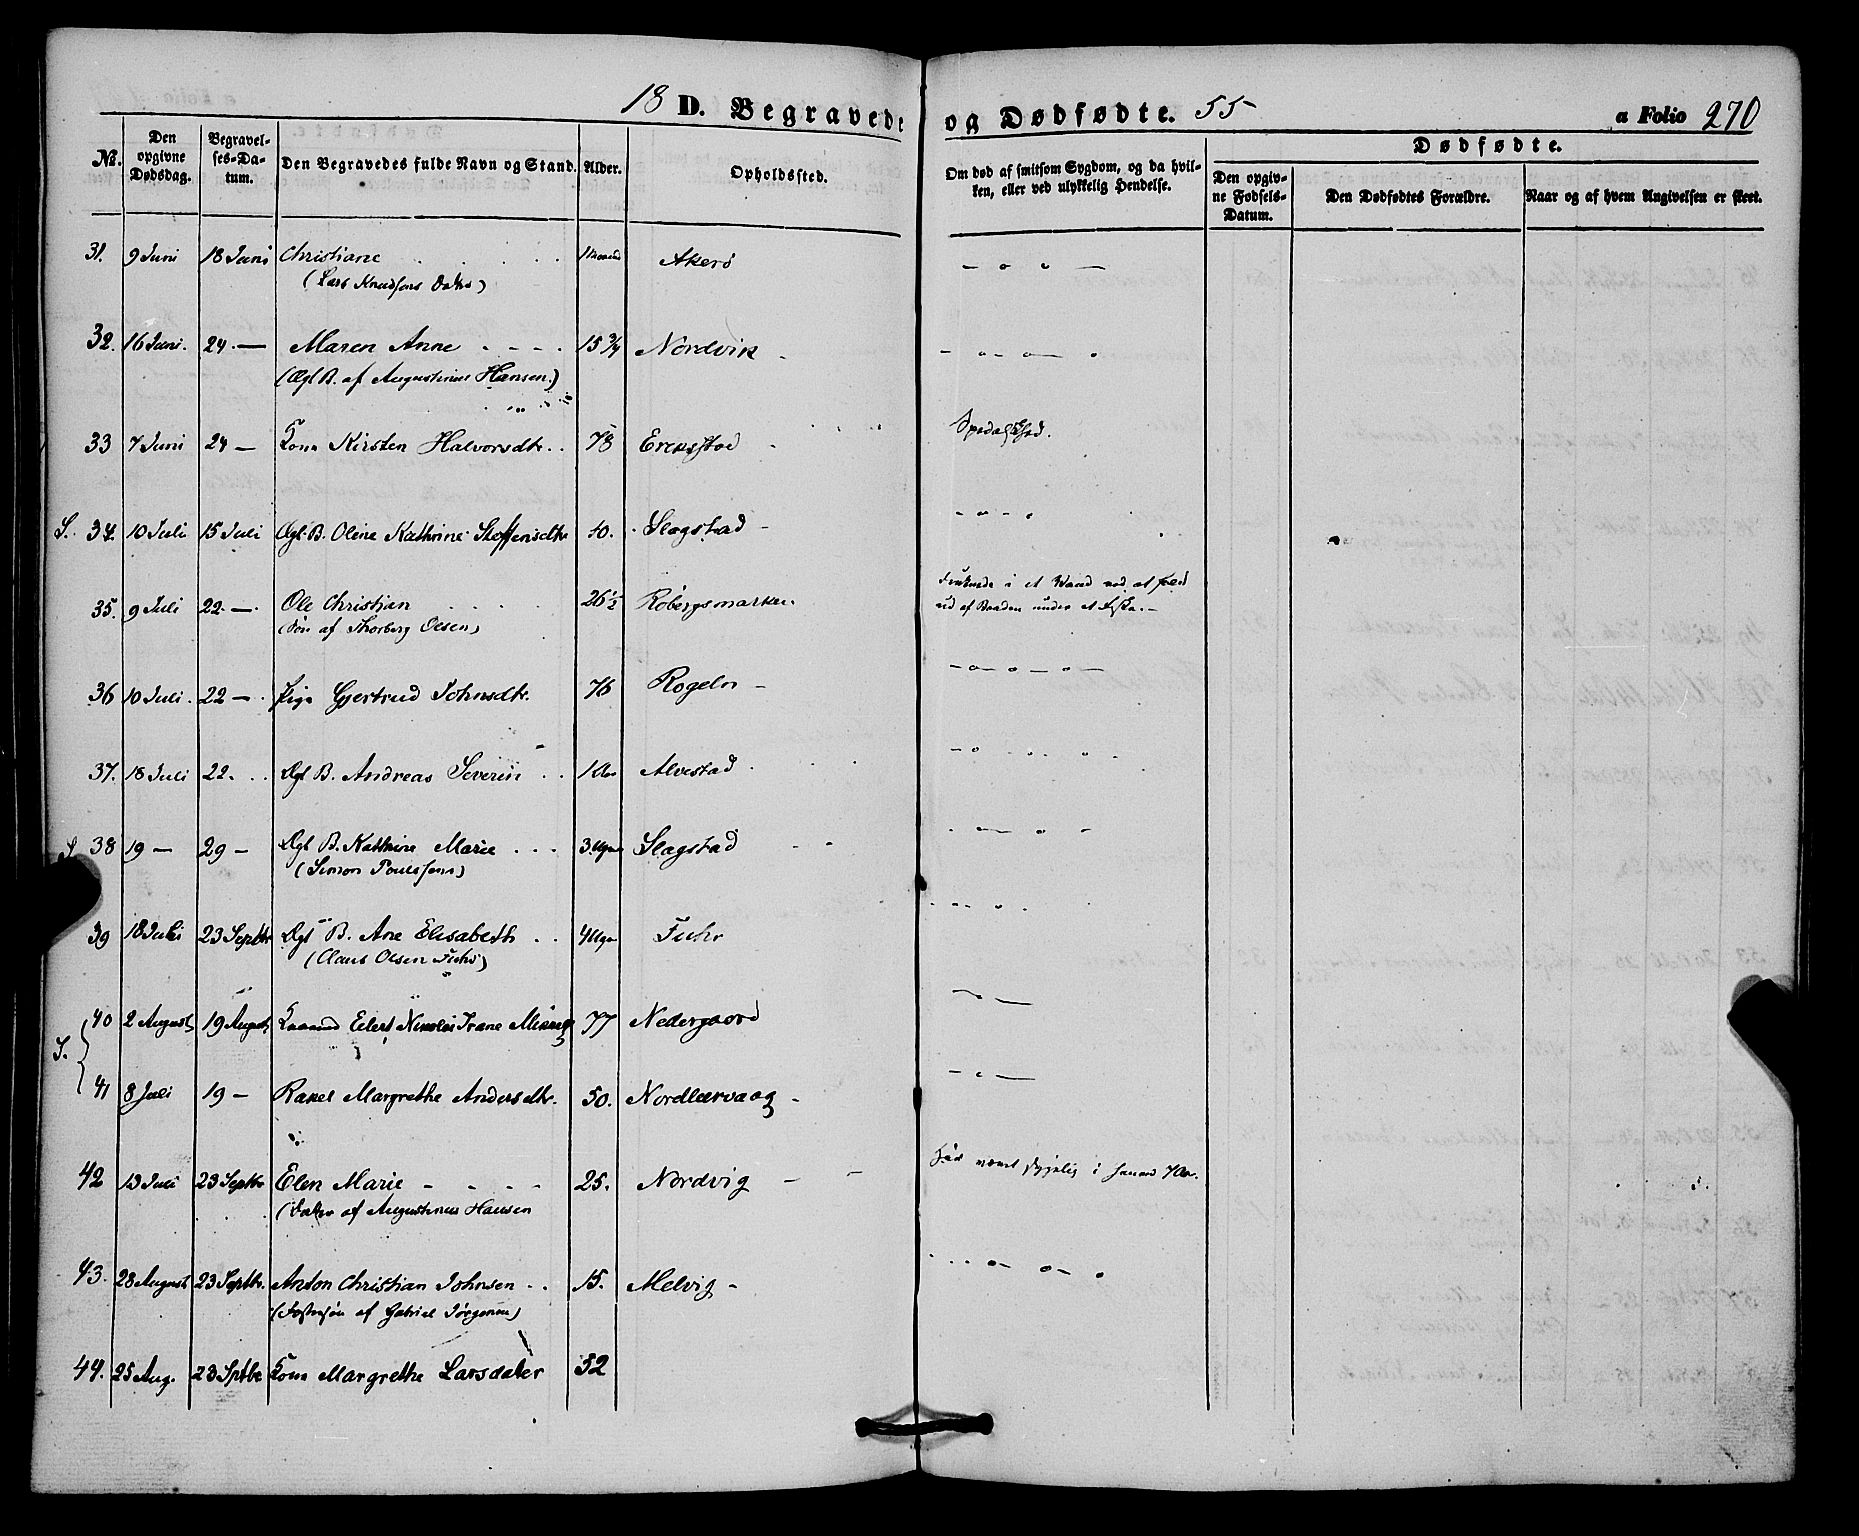 18 D. Begravede og Dødfødte. 55 a Folio 270
No. Den opgivne Dødsdag. Begravelses-Datum. Den Begravedes fulde Navn og Stand. Alder. Opholdssted. Om død af smitsom Sygdom, og da hvilken, eller ved ulykkelig Hendelse. Dødfødte.
Den opgivne Fødsels-Datum. Den Dødfødtes Forældre. Naar og af hvem Angivelsen er skeet.
31. 9 Juni 18 Juni Christiane Akerø
(Lars Knudsens
32. 16 Juni. 24 — Maren Anne 15 3/4 Nordvik
(Ægt B. af Augustinus Hansen.)
33 7 Juni 24 — Kone Kirsten Halvorsdtr. 78 Spedalskhed.
S. 34. 10 Juli 15 Juli Ægt. B. Oline Kathrine Stoffensdtr 40. Slagstad
35. 9 Juli 22 — Ole Christian 26 1/2 Røbergsmarken. i et Vand ved at
ud af Baaden under et
(Søn af Thorberg Olsen)
36 10 Juli. 22 — Pige Gjertrud Johnsdtr. 76 Rogeln
37. 18 Juli 22. Ægt B. Andreas Severin Alvestad
S 38 19 — 29 — Ægt B. Kathrine Marie 3 Uger Slagstad
(Simon Poulssens)
39 18 Juli 23 Septbr Ægt B. Ane Elisabeth 4 Uger
(Claus Olsen
S. 40 2 August 19 August Eilert Nikolai 77 Nedergaard
41 8 Juli 19 — Rakel Margrethe Andersdtr. 50. Nordlærvaag
42 13 Juli 23 Septbr Elen Marie 25. Nordvig
(Datter af Augustinus Hansen
43. 28 August 23 Septbr. Anton Christian Johnsen 15. Melvig
(Fostersøn af Gabriel Jørgensen)
44. 25 Aug. 23 Sptbr Kone Margrethe Larsdater 52